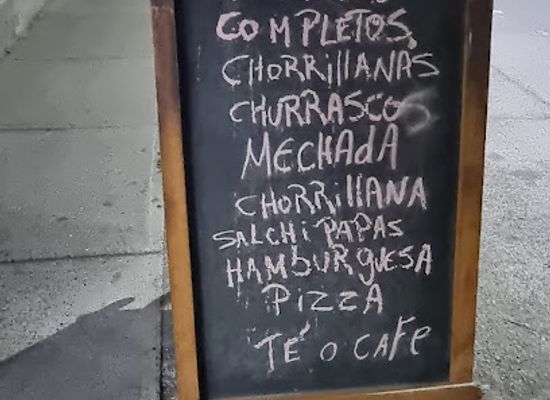 COMPLETOS
CHORRillANAS
CHURRASCOS
MECHAdA
CHORRillANA
SALCHiPAPAS
HAMBURgUESA
PizzA
TÉ O CAFe